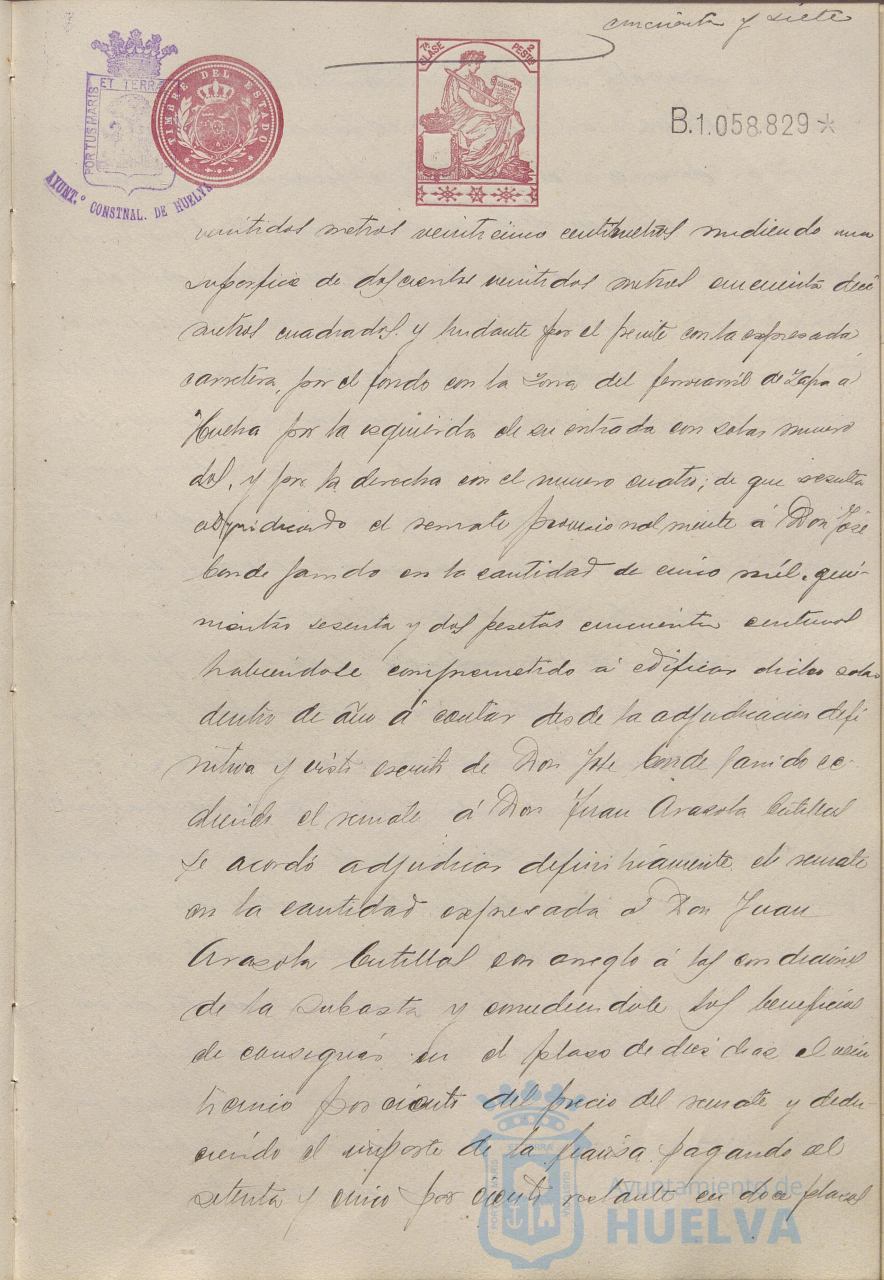 cincuenta y siete
7ª CLASE 2 PESTAS
B.1.058.829*
ET TERRA
PORTUS MARIS
TIMBRE DEL ESTADO
AYUNT.º CONSTNAL. DE HUELVA
veintidos metros veinticinco centimetros midiendo una
superficie de doscientos veintidos metros cincuenta deci
metros cuadrados y lindante por el frente con la expresada
carretera, por el fondo con la zona del ferrocarril de Zafra á
Huelva por la izquierda de su entrada con solar numero
dos, y por la derecha con el numero cuatro; de que resulta
adjudicado el remate provisionalmente á Don José
Conde Garrido en la cantidad de cinco mil quini-
nientas sesenta y dos pesetas cincuenta centimos
habiendose comprometido á edificar dicho solar
dentro de año á contar desde la adjudicacion defi
nitiva y visto escrito de Don José Conde Garrido ce-
diendo el remate á Don Juan Arasola Cutillas
se acordó adjudicar definitivamente el remate
en la cantidad expresada á Don Juan
Arasola Cutillas con arreglo á las condiciones
de la subasta y concediendole los beneficios
de consegnar en el plaso de dies dias el vein
ticinco por ciento del precio del remate y dedu-
ciendo el importe de la fianza pagando el
setenta y cinco por ciento restante en doce plasos
Ayuntamiento de
HUELVA